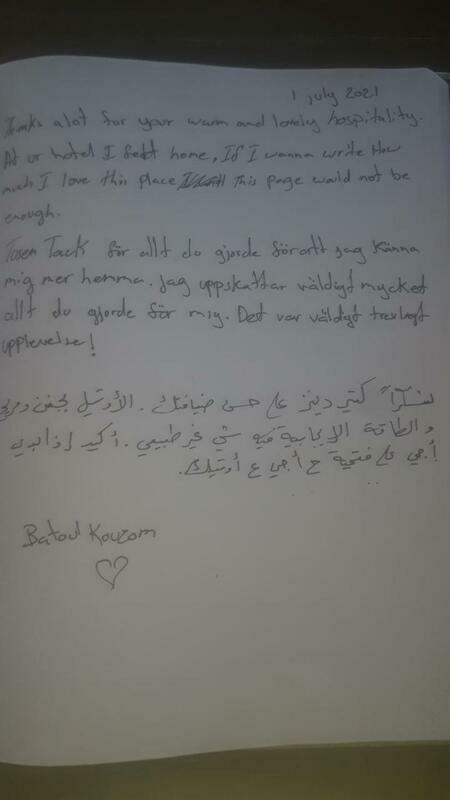 1 july 2021
Thanks alot for your warm and lovely hospitality.
At ur hotel I felt home, If I wanna write How
much I love this place This page would not be
enough.
Tusen Tack för allt du gjorde föratt jag känna
mig mer hemma. Jag uppskattar väldigt mycket
allt du gjorde för mig. Det var väldigt trevligt
upplevelse!
شكراً كتير دينيز على حسن ضيافتك. الأوتيل بجنن ومريح
والطاقة الإيجابية فيه شي غير طبيعي. أكيد إذا بدي
أجي على فتحية ح أجي ع أوتيلك.
Batoul Kouzom